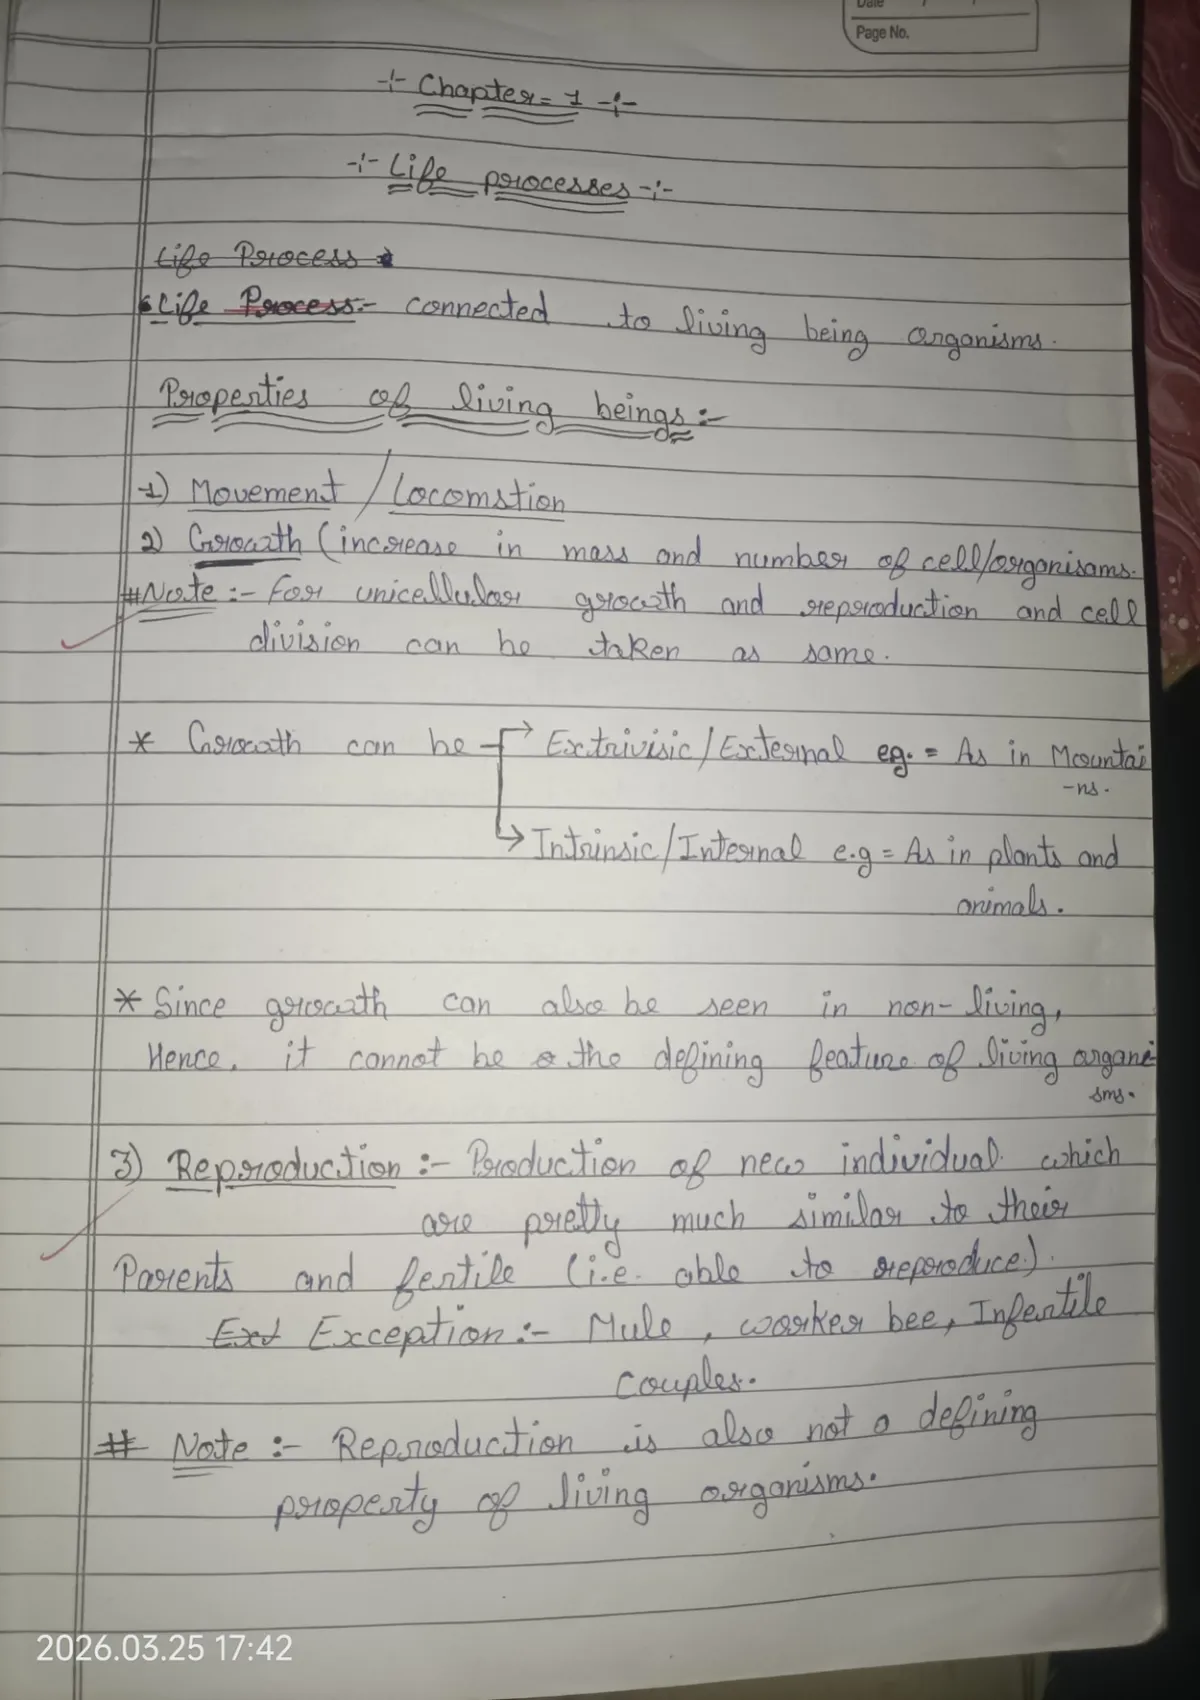 Date / /
Page No.
-:- Chapter = 1 -:-
-:- Life processes -:-
Life Process
Life Process:- connected to living being organisms.
Properties of living beings :-
1) Movement / Locomotion
2) Growth (increase in mass and number of cell/organisams.
#Note :- For unicellular growth and reproduction and cell
division can be taken as same.
* Growth can be → Extrivisic / External eg. = As in Mountai
-ns.
→ Intrinsic / Internal e.g = As in plants and
animals.
* Since growth can also be seen in non-living,
Hence, it cannot be the defining feature of living organi
sms.
3) Reproduction :- Production of new individual which
are pretty much similar to their
Parents and fertile (i.e. able to reproduce).
Ext Exception :- Mule, worker bee, Infertile
Couples.
# Note :- Reproduction is also not a defining
property of living organisms.
2026.03.25 17:42